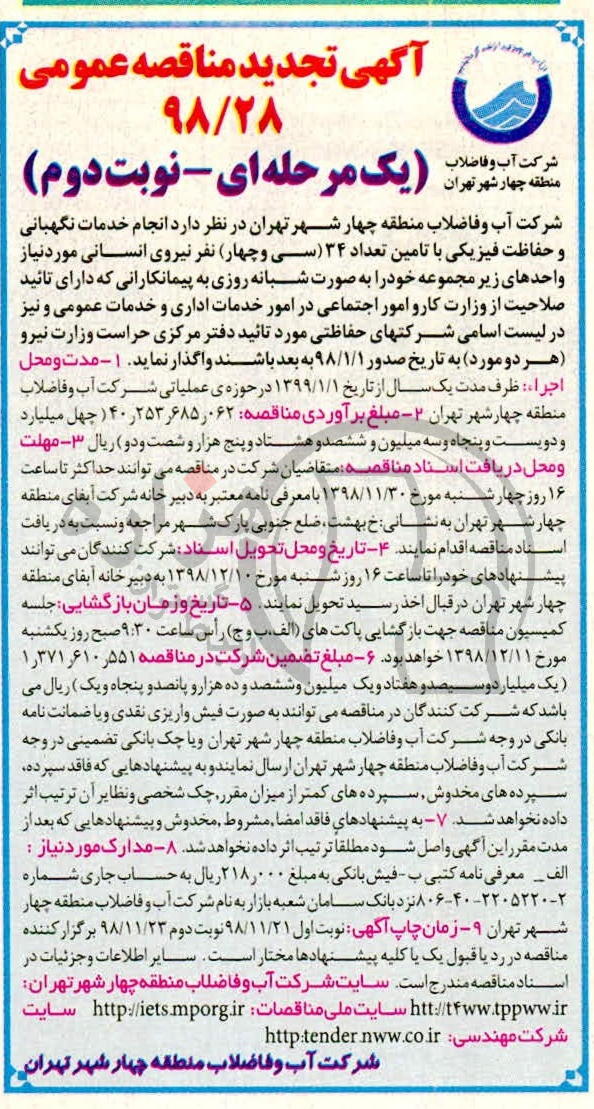 آگهی تجدید مناقصه عمومی
۹۸/۲۸
(یک مرحله‌ای - نوبت دوم)
شرکت آب و فاضلاب
منطقه چهار شهر تهران
شرکت آب و فاضلاب منطقه چهار شهر تهران در نظر دارد انجام خدمات نگهبانی
و حفاظت فیزیکی با تامین تعداد ۳۴ (سی و چهار) نفر نیروی انسانی موردنیاز
واحدهای زیر مجموعه خود را به صورت شبانه روزی به پیمانکارانی که دارای تائید
صلاحیت از وزارت کار و امور اجتماعی در امور خدمات اداری و خدمات عمومی و نیز
در لیست اسامی شرکتهای حفاظتی مورد تائید دفتر مرکزی حراست وزارت نیرو
(هر دو مورد) به تاریخ صدور ۹۸/۱/۱ به بعد باشند واگذار نماید. ۱- مدت و محل
اجراء: ظرف مدت یک سال از تاریخ ۱۳۹۹/۱/۱ در حوزه ی عملیاتی شرکت آب و فاضلاب
منطقه چهار شهر تهران ۲- مبلغ برآوردی مناقصه: ۴۰٫۲۵۳٫۶۸۵٫۰۶۲ ( چهل میلیارد
و دویست و پنجاه و سه میلیون و ششصد و هشتاد و پنج هزار و شصت و دو) ریال ۳- مهلت
و محل دریافت اسناد مناقصه: متقاضیان شرکت در مناقصه می توانند حداکثر تا ساعت
۱۶ روز چهار شنبه مورخ ۱۳۹۸/۱۱/۳۰ با معرفی نامه معتبر به دبیر خانه شرکت آبفای منطقه
چهار شهر تهران به نشانی: خ بهشت، ضلع جنوبی پارک شهر مراجعه و نسبت به دریافت
اسناد مناقصه اقدام نمایند. ۴- تاریخ و محل تحویل اسناد: شرکت کنندگان می توانند
پیشنهادهای خود را تا ساعت ۱۶ روز شنبه مورخ ۱۳۹۸/۱۲/۱۰ به دبیر خانه آبفای منطقه
چهار شهر تهران در قبال اخذ رسید تحویل نمایند. ۵- تاریخ و زمان بازگشایی: جلسه
کمیسیون مناقصه جهت بازگشایی پاکت های (الف، ب و ج) رأس ساعت ۹:۳۰ صبح روز یکشنبه
مورخ ۱۳۹۸/۱۲/۱۱ خواهد بود. ۶- مبلغ تضمین شرکت در مناقصه ۱٫۳۷۱٫۶۱۰٫۵۵۱
( یک میلیارد و سیصد و هفتاد و یک میلیون و ششصد و ده هزار و پانصد و پنجاه و یک ) ریال می
باشد که شرکت کنندگان در مناقصه می توانند به صورت فیش واریزی نقدی و یا ضمانت نامه
بانکی در وجه شرکت آب و فاضلاب منطقه چهار شهر تهران و یا چک بانکی تضمینی در وجه
شرکت آب و فاضلاب منطقه چهار شهر تهران ارسال نمایند و به پیشنهادهایی که فاقد سپرده،
سپرده های مخدوش، سپرده های کمتر از میزان مقرر، چک شخصی و نظایر آن ترتیب اثر
داده نخواهد شد. ۷- به پیشنهادهای فاقد امضا، مشروط، مخدوش و پیشنهادهایی که بعد از
مدت مقرر این آگهی واصل شود مطلقا ترتیب اثر داده نخواهد شد. ۸- مدارک مورد نیاز :
الف _ معرفی نامه کتبی ب - فیش بانکی به مبلغ ۲۱۸٫۰۰۰ ریال به حساب جاری شماره
۸۰۶-۴۰-۲۲۰۵۲۲۰-۲ نزد بانک سامان شعبه بازار به نام شرکت آب و فاضلاب منطقه چهار
شهر تهران ۹- زمان چاپ آگهی: نوبت اول ۹۸/۱۱/۲۱ نوبت دوم ۹۸/۱۱/۲۳ برگزار کننده
مناقصه در رد یا قبول یک یا کلیه پیشنهادها مختار است. سایر اطلاعات و جزئیات در
اسناد مناقصه مندرج است. سایت شرکت آب و فاضلاب منطقه چهار شهر تهران:
htt://t۴ww.tppww.ir سایت ملی مناقصات: http://iets.mporg.ir سایت
شرکت مهندسی: http:tender.nww.co.ir
شرکت آب و فاضلاب منطقه چهار شهر تهران